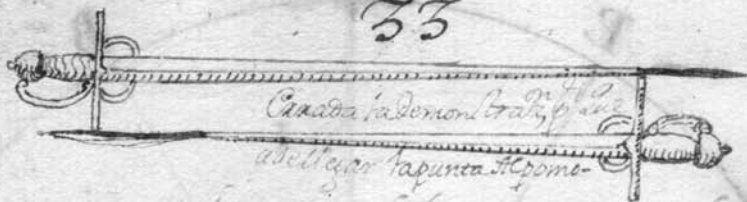 33
Errada la demonstraz.n p.r q.e
a de llegar la punta Al pomo-